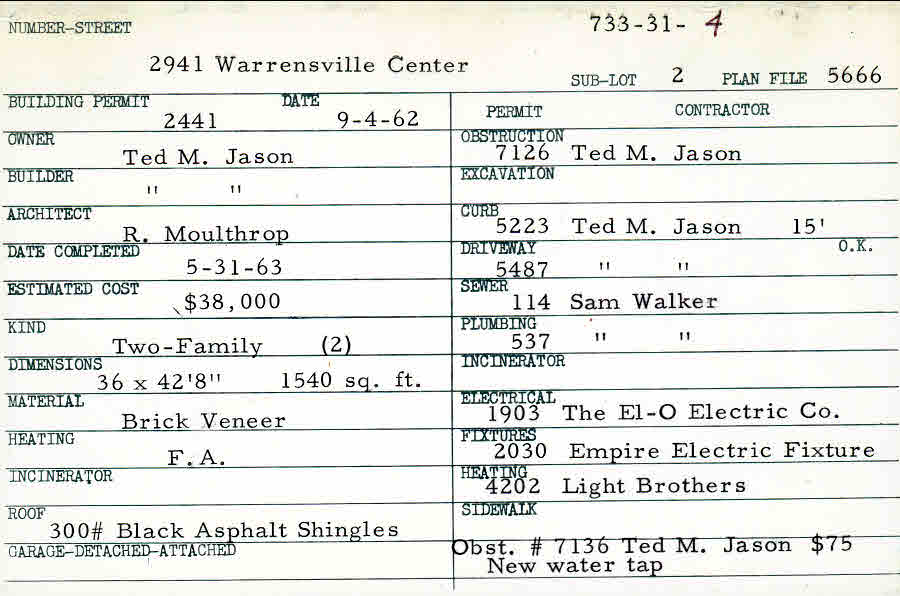 NUMBER-STREET 733-31- 4
2941 Warrensville Center
SUB-LOT 2 PLAN FILE 5666
BUILDING PERMIT DATE
2441 9-4-62
OWNER
Ted M. Jason
BUILDER
" "
ARCHITECT
R. Moulthrop
DATE COMPLETED
5-31-63
ESTIMATED COST
$38,000
KIND
Two-Family (2)
DIMENSIONS
36 x 42'8" 1540 sq. ft.
MATERIAL
Brick Veneer
HEATING
F.A.
INCINERATOR
ROOF
300# Black Asphalt Shingles
GARAGE-DETACHED-ATTACHED
PERMIT CONTRACTOR
OBSTRUCTION
7126 Ted M. Jason
EXCAVATION
CURB
5223 Ted M. Jason 15'
DRIVEWAY O.K.
5487 " "
SEWER
114 Sam Walker
PLUMBING
537 " "
INCINERATOR
ELECTRICAL
1903 The El-O Electric Co.
FIXTURES
2030 Empire Electric Fixture
HEATING
4202 Light Brothers
SIDEWALK
Obst. # 7136 Ted M. Jason $75
New water tap